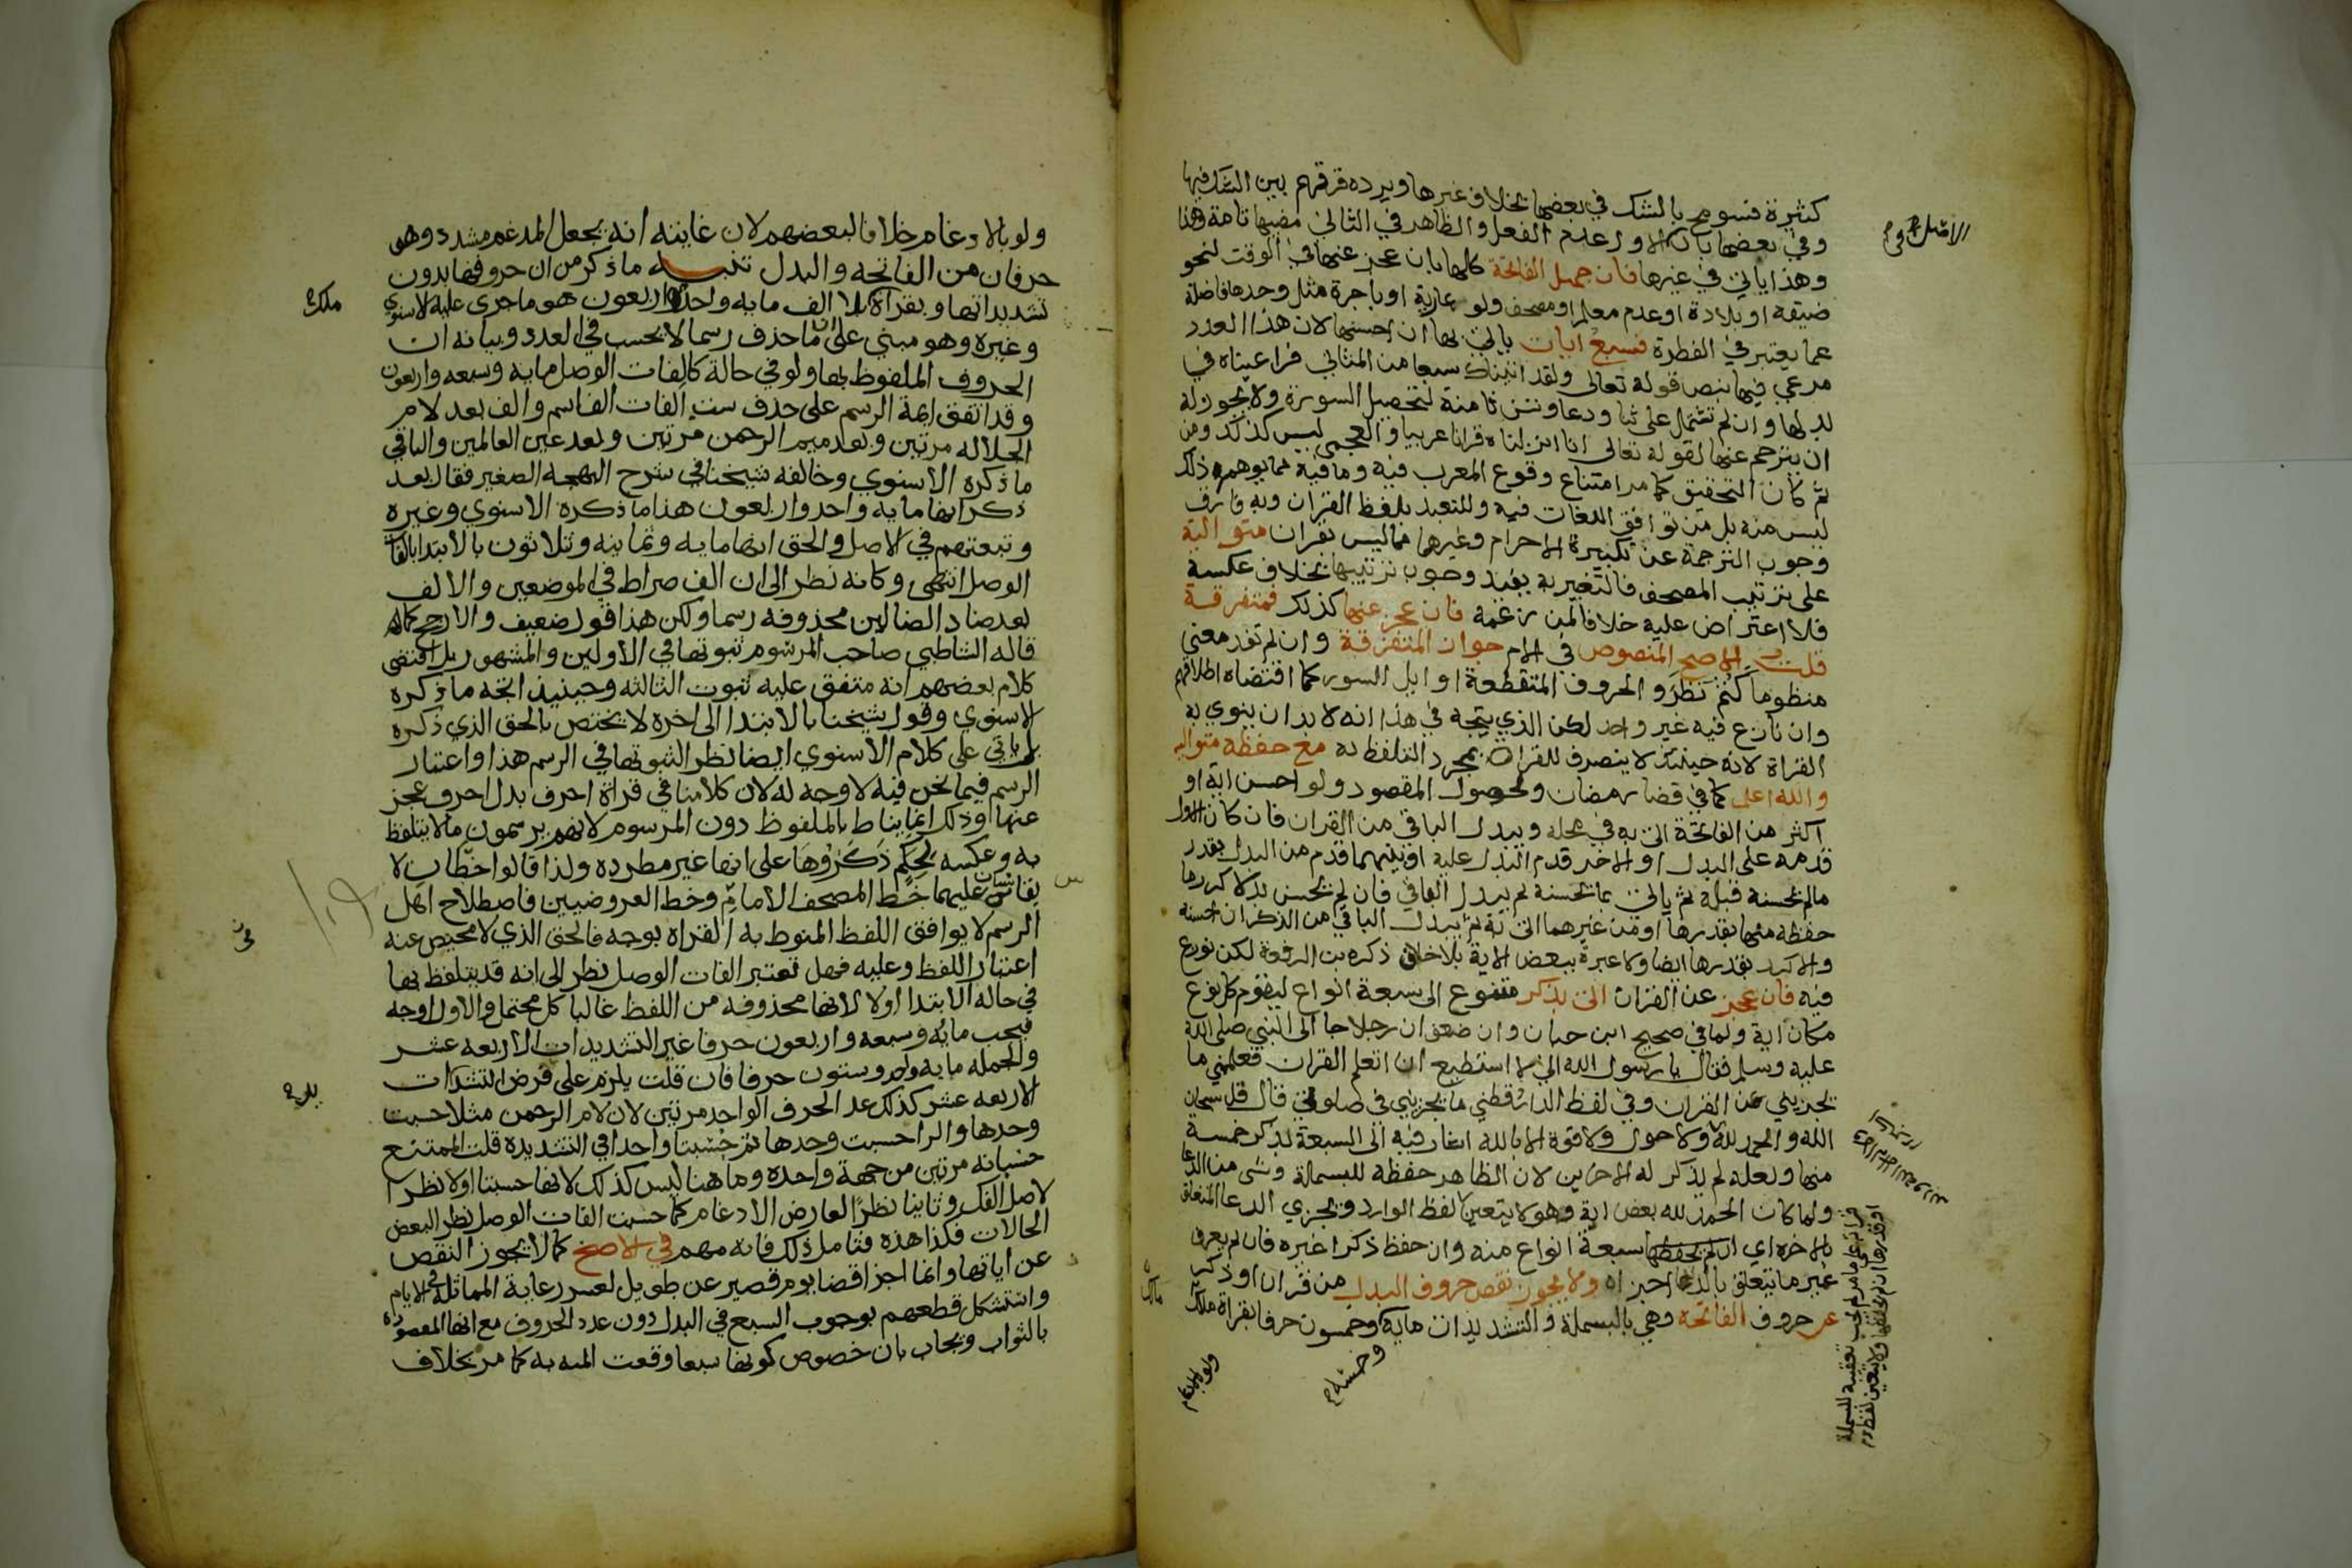 كثيرة فسومح بالشك في بعضها بخلاف غيرها ويرده فرقهم بين الشك فيها
وفي بعضها بان الاول عدم الفعل والظاهر في الثاني مضيها تامة وهذا
وهذا ياتي في غيرها فان جهل الفاتحة كلها بان عجز عنها في الوقت لنحو
ضيقه او بلادة او عدم معلم او مصحف ولو عارية او باجرة مثل وجدها فاضلة
عما يعتبر في الفطرة فسبع ايات ياتي بها ان احسنها لان هذا العدد
مرعي فيها بنص قوله تعالى ولقد اتيناك سبعا من المثاني فراعيناه في
بدلها وان لم تشتمل على ثنا ودعا وتسن ثامنة لتحصيل السورة ولا يجوز له
ان يترجم عنها لقوله تعالى انا انزلناه قرانا عربيا والعجمي ليس كذلك ومن
ثم كان التحقيق كما مر امتناع وقوع المعرب فيه وما فيه مما يوهم ذلك
ليس منه بل من توافق اللغات فيه وللتعبد بلفظ القران وبه فارق
وجوب الترجمة عن تكبيرة الاحرام وغيرها مما ليس بقران متوالية
على ترتيب المصحف فالتعبير به يفيد وجوب ترتيبها بخلاف عكسه
فلا اعتراض عليه خلافا لمن زعمه فان عجز عنها كذلك فمتفرقة
قلت الاصح المنصوص في الام جواز المتفرقة وان لم تفد معنى
منظوما كثم نظر والحروف المتقطعة اوايل السور كما اقتضاه اطلاقهم
وان نازع فيه غير واحد لكن الذي يتجه في هذا انه لا بد ان ينوي به
القراة لانه حينئذ لا ينصرف للقران بمجرد التلفظ به مع حفظه متوالية
والله اعلم كما في قضا رمضان ولحصول المقصود ولو احسن اية او
اكثر من الفاتحة اتى به في محله ويبدل الباقي من القران فان كان الاول
قدمه على البدل او الاخر قدم البدل عليه او بينهما قدم من البدل بقدر
مالم يحسنه قبله ثم ياتي بما يحسنه ثم يبدل الباقي فان لم يحسن بدلا كرر ما
حفظه منها بقدرها او من غيرهما اتى به ثم يبدل الباقي من الذكر ان احسنه
والا كرر بقدرها ايضا ولا عبرة ببعض الاية بلا خلاف ذكره بن الرفعة لكن نوزع
فيه فان عجز عن القران اتى بذكر متنوع الى سبعة انواع ليقوم كل نوع
مكان اية ولما في صحيح ابن حبان وان ضعف ان رجلا جا الى النبي صلى الله
عليه وسلم فقال يا رسول الله اني لا استطيع ان اتعلم القران فعلمني ما
يجزيني عن القران وفي لفظ الدارقطني ما يجزيني في صلوتي قال قل سبحان
الله والحمد لله ولا حول ولا قوة الا بالله اشار فيه الى السبعة بذكر خمسة
منها ولعله لم يذكر له الاخرين لان الظاهر حفظه للبسملة وشي من الدعا
ولما كان الحمد لله بعض اية وهو لا يتعين لفظ الوارد ويجزي الدعا المتعلق
بالاخره اي ان لم يحفظها سبعة انواع منه وان حفظ ذكرا غيره فان لم يعرف
غير ما يتعلق بالدنيا اجزاه ولا يجوز نقص حروف البدل من قران او ذكر
عن حروف الفاتحة وهي بالبسملة والتشديدات ماية وخمسون حرفا بقراة ملك
وخمسة
ولو بالادغام
ولو بالادغام خلافا لبعضهم لان غايته انه يجعل المدغم مشددا وهو
حرفان من الفاتحه والبدل تنبيه ما ذكر من ان حروفها بدون
تشديداتها وبقراة ملك بلا الف مايه واحد واربعون هو ما جرى عليه الاسنوي
وغيره وهو مبني على ان ما حذف رسما لا يحسب في العدد وبيانه ان
الحروف الملفوظ بها ولو في حالة كالفات الوصل مايه وسبعه واربعون
وقد اتفق ايمة الرسم على حذف ست الفات الف اسم والف بعد لام
الجلاله مرتين وبعد ميم الرحمن مرتين وبعد عين العالمين والباقي
ما ذكره الاسنوي وخالفه شيخنا في شرح البهجه الصغير فقال بعد
ذكر انها مايه واحد واربعون هذا ما ذكره الاسنوي وغيره
وتبعتهم في الاصل والحق انها مايه وثمانيه وثلاثون بالابتدا بالفات
الوصل انتهى وكانه نظر الى ان الف صراط في الموضعين والالف
بعد ضاد الضالين محذوفه رسما ولكن هذا قول ضعيف والارجح كما
قاله الشاطبي صاحب المرسوم ثبوتها في الاولين والمشهور بل اقتضى
كلام بعضهم انه متفق عليه ثبوت الثالثه وحينئذ اتجه ما ذكره
الاسنوي وقول شيخنا بالابتدا الى اخره لا يختص بالحق الذي ذكره
بل ياتي على كلام الاسنوي ايضا نظر الثبوتها في الرسم هذا واعتبار
الرسم فيما نحن فيه لا وجه له لان كلامنا في قراة احرف بدل احرف عجز
عنها وذلك انما يناط بالملفوظ دون المرسوم لانهم يرسمون مالا يتلفظ
به وعكسه لحكم ذكروها على انها غير مطرده ولذا قالوا خطان لا
يقاس عليهما خط المصحف الامام وخط العروضيين فاصطلاح اهل
الرسم لا يوافق اللفظ المنوط به القراه بوجه فالحق الذي لا محيص عنه
اعتبار اللفظ وعليه فهل تعتبر الفات الوصل نظر الى انه قد يتلفظ بها
في حاله الابتدا اولا لانها محذوفه من اللفظ غالبا كل محتمل والاول اوجه
فيجب مايه وسبعه واربعون حرفا غير التشديدات الاربعه عشر
والجمله مايه واحد وستون حرفا فان قلت يلزم على فرض التشدات
الاربعه عشر كذلك عد الحرف الواحد مرتين لان لام الرحمن مثلا حسبت
وحدها والرا حسبت وحدها ثم حسبتا واحدا في التشديده قلت الممتنع
حسبانه مرتين من جهة واحده وما هنا ليس كذلك لانها حسبتا اولا نظرا
لاصل الفك وثانيا نظر العارض الادغام كما حسبت الفات الوصل نظر البعض
الحالات فكذا هذه فتامل ذلك فانه مهم في الاصح كما لا يجوز النقص
عن اياتها وانما اجزا قضا يوم قصير عن طويل لعسر رعاية المماثلة في الايام
واستشكل قطعهم بوجوب السبع في البدل دون عدد الحروف مع انها المقصوده
بالثواب ويجاب بان خصوص كونها سبعا وقعت المنه به كما مر بخلاف